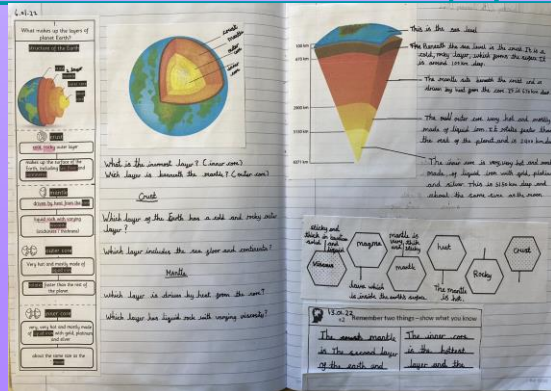 6.01.22
What makes up the layers of
planet Earth?
Structure of the Earth
crust
cold, rocky outer layer
makes up the surface of the
earth, including
mantle
driven by heat from the
liquid rock with varying
(stickiness / thickness)
outer core
Very hot and mostly made of
faster than the rest of
the planet
inner core
very, very hot and mostly made
of with gold, platinum
and silver
about the same size as the
crust
mantle
outer
core
inner
core
What is the inermost layer? (inner core)
Wich layer is beneath the mantle? (outer core)
Crust
Which layer of the Earth has a cold and rocky outer
layer?
Which layer includes the sea floor and continents?
Mantle
Which layer is driven by heat from the core?
Which layer has liquid rock with varying viscosity?
This is the sea level
Beneath the sea level is the crust. It is a
cold, rocky layer, which forms the surface. It
is around 100 km deep.
The mantle sits beneath the crust and is
driven by heat from the core. It is 670 km deep
The outer core very hot and mostly
made of liquid iron. It rotates faster than
the rest of the planet and is
The inner core is very, very hot and
made of liquid iron with gold, platinum
and silver. This is 5150 km deep and
about the same size as the moon.
sticky and
thick in
solid and
liquid
Viscous
magma
lava which
is inside the earth's surface.
mantle is
very thick
and sticky
mantle
The mantle
is hot.
heat
Rocky
Crust
13.01.22
x2 Remember two things – show what you know
The mantle
is the second layer
of the earth and
The inner core
is the hottest
layer and the